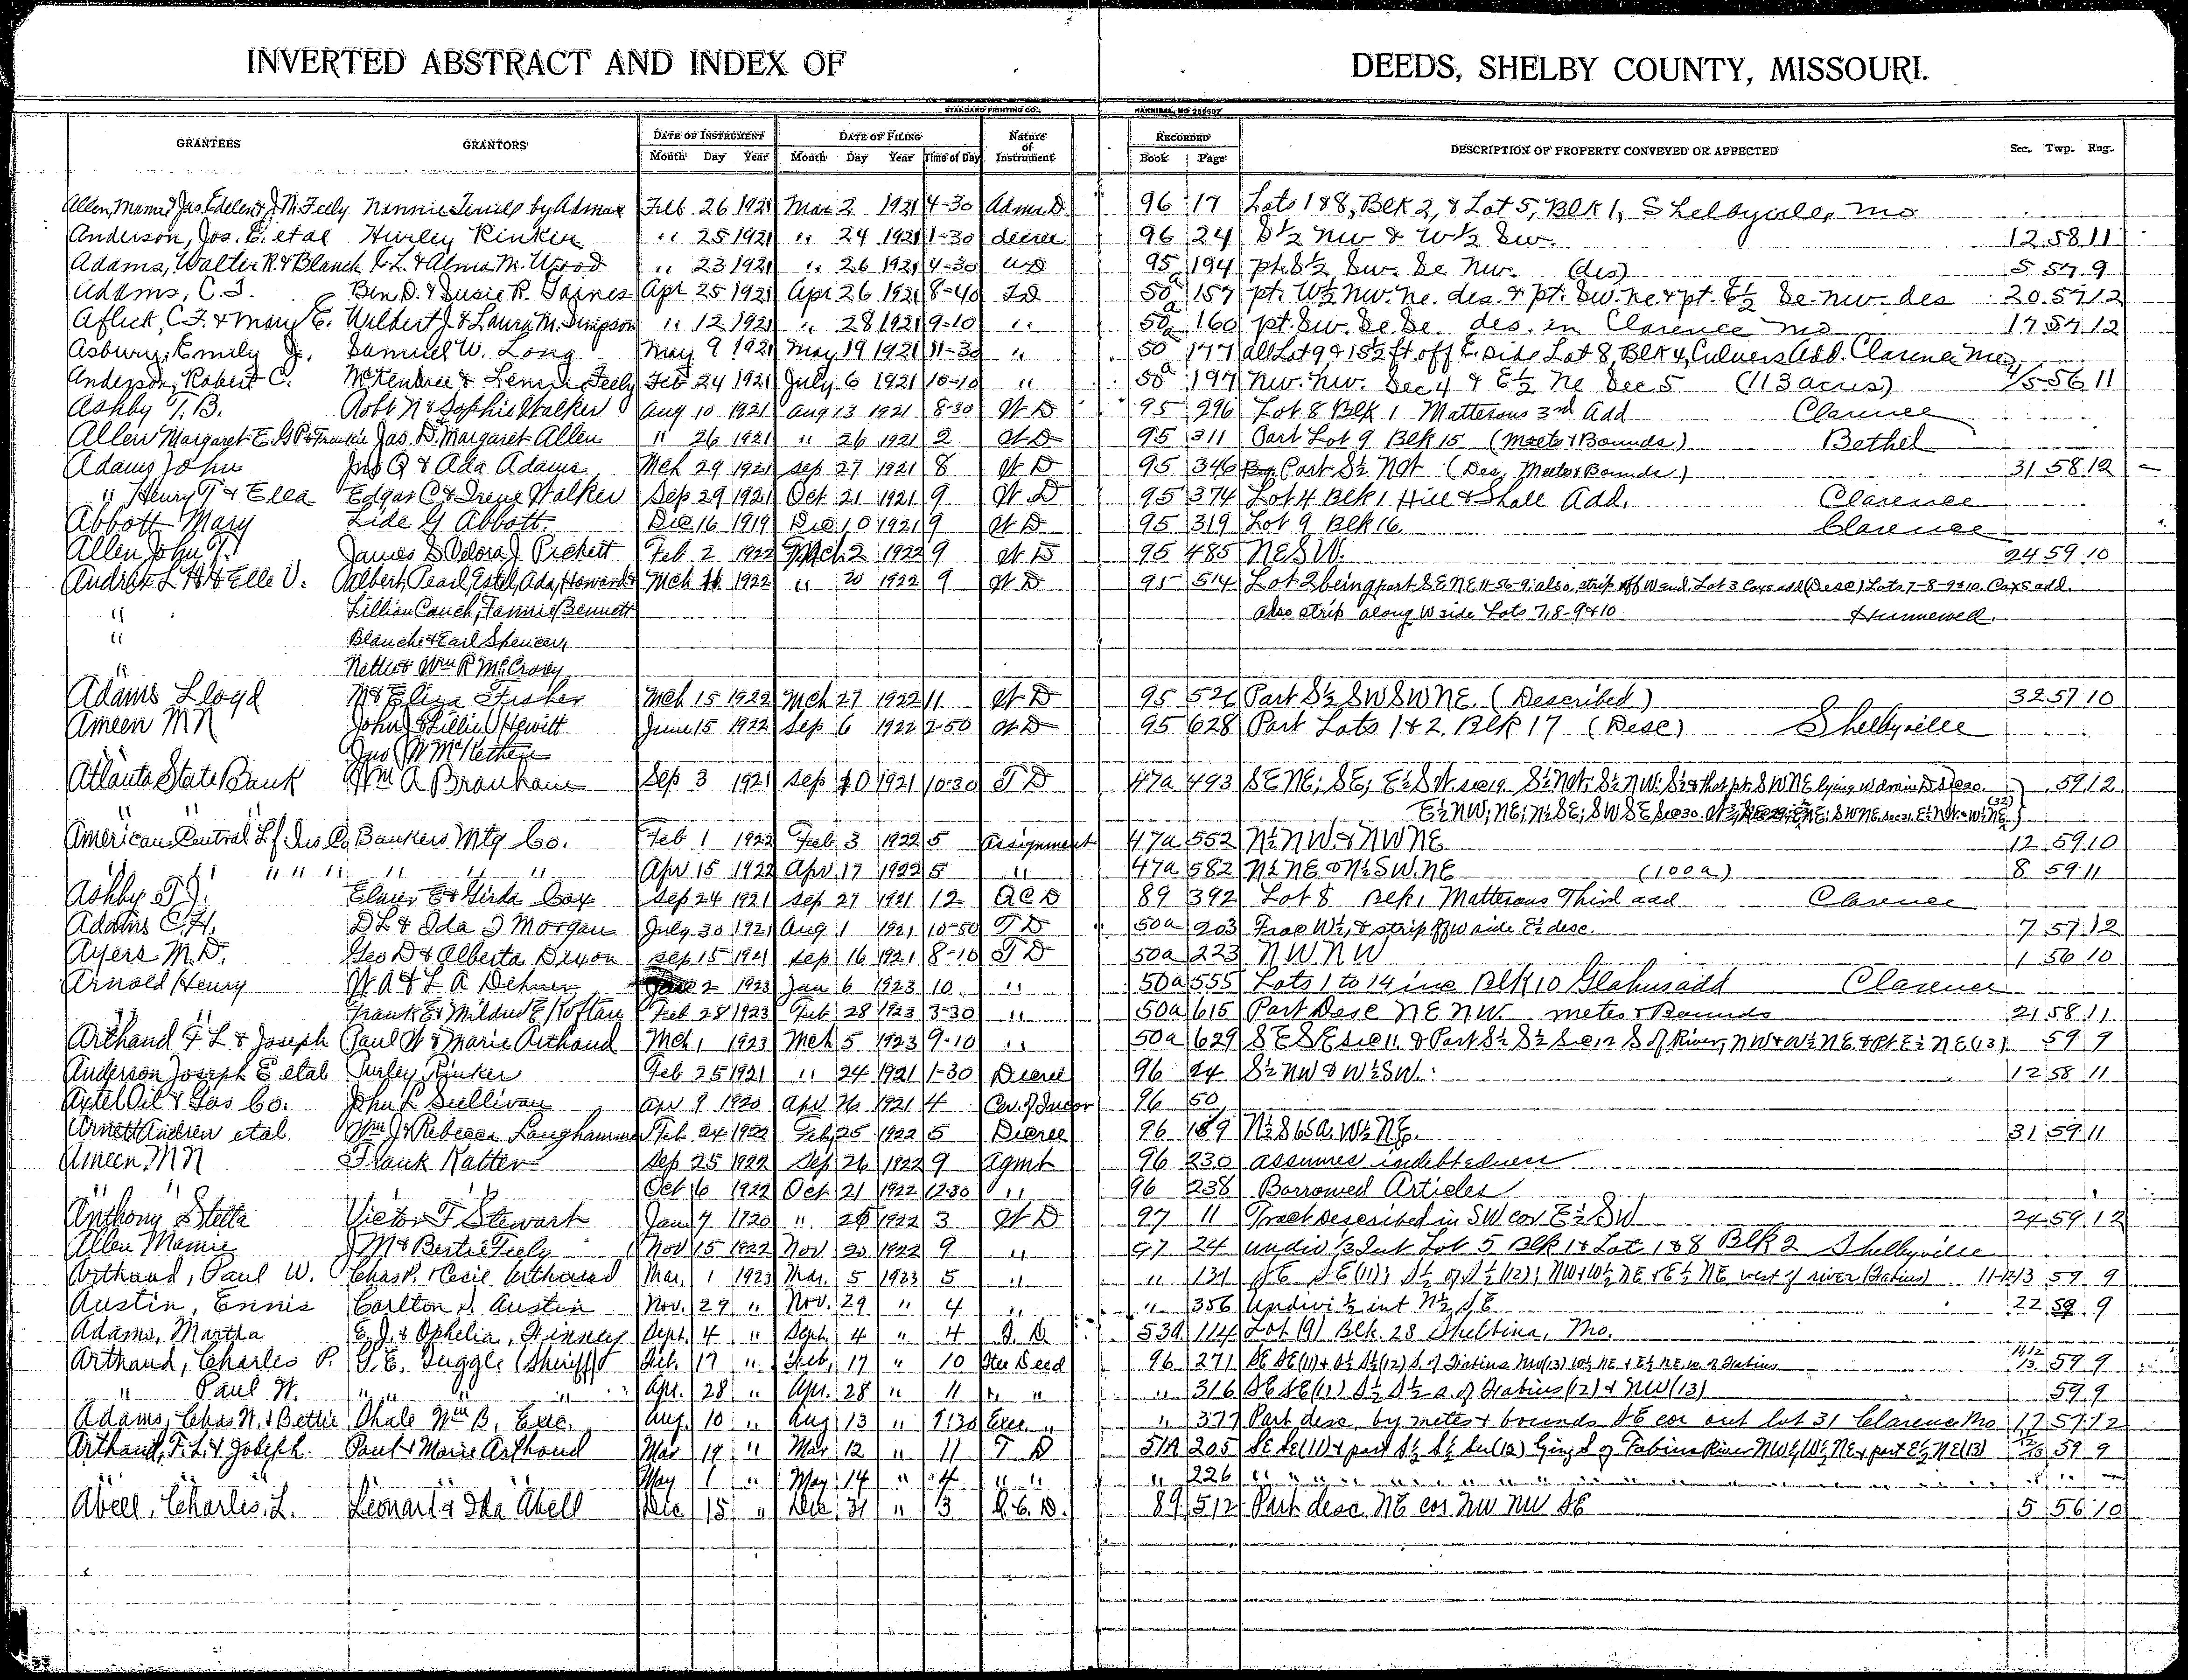 INVERTED ABSTRACT AND INDEX OF DEEDS, SHELBY COUNTY, MISSOURI.
STANDARD PRINTING CO., HANNIBAL, MO
GRANTEES GRANTORS DATE OF INSTRUMENT DATE OF FILING Nature of Instrument RECORDED DESCRIPTION OF PROPERTY CONVEYED OR AFFECTED Sec. Twp. Rng.
Month Day Year Month Day Year Time of Day Book Page
Allen, Mamie & Jas. Edelen & J. M. Feely Nennie by Admrx Feb 26 1921 Mar 2 1921 4-30 Admr D. 96 17 Lots 1 & 8, Blk 2, & Lot 5, Blk 1, Shelbyville, Mo
Anderson, Jos. E. et al Hurley Rinker " 25 1921 " 24 1921 1-30 decree 96 24 S½ NW & W½ SW. 12 58 11
Adams, Walter R. & Blanch & Alma M. Wood " 23 1921 " 26 1921 4-30 WD 95 194 pt. S½ SW. SE NW. (des) 5 57 9
Adams, C. T. Ben D. & Susie R. Gaines Apr 25 1921 Apr 26 1921 8-40 TD 50a 157 pt. W½ NW. NE. des. & pt. SW. NE & pt. E½ SE. NW. des 20 57 12
Aflick, C. F. & Mary E. Wilbert J. & Laura M. Simpson " 12 1921 " 28 1921 9-10 " 50a 160 pt. SW. SE. SE. des. in Clarence Mo 17 57 12
Asbury, Emily J. Samuel W. Long May 9 1921 May 19 1921 11-30 " 50a 177 all Lot 9 & 15½ ft off E. side Lot 8, Blk 4, Culvers Add. Clarence Mo.
Anderson, Robert C. McKendree & Lennie Feely Feb 24 1921 July 6 1921 10-10 " 50a 197 NW. NW. Sec 4 & E½ NE Sec 5 (113 acres) 4/5-56 11
Ashby T. B. Robt N & Sophie Walker Aug 10 1921 Aug 13 1921 8-30 W D 95 296 Lot 8 Blk 1 Mattersons 3rd Add Clarence
Allen Margaret E. G P & Frankie Jas. D. Margaret Allen " 26 1921 " 26 1921 2 W D 95 311 Part Lot 9 Blk 15 (Meets & Bounds) Bethel
Adams John Jno Q & Ada Adams Mch 29 1921 Sep 27 1921 8 W D 95 346 Part S½ NW (Des, Meets & Bounds) 31 58 12
" Henry T & Ella Edgar C & Irene Walker Sep 29 1921 Oct 21 1921 9 W D 95 374 Lot 4 Blk 1 Hill & Shall Add. Clarence
Abbott Mary Lide G Abbott Dec 16 1919 Dec 10 1921 9 W D 95 319 Lot 9 Blk 16 Clarence
Allen John T. James S Delora J Prickett Feb 2 1922 Mch 2 1922 9 W D 95 485 NE SW. 24 59 10
Andrix L H & Elle V. Albert, Pearl, Estel, Ada, Howard & Mch 1922 " 20 1922 9 W D 95 514 Lot 2 being part SE NE 11-56-9; also strip off W end. Lot 3 Coxs add (Desc) Lots 7-8-9&10. Coxs add.
" Lillian Couch, Fannie Bennett also strip along W side Lots 7, 8-9&10 Hunnewell.
" Blanche & Earl Spencer,
" Nettie & Wm R McCrary
Adams Lloyd M & Eliza Fisher Mch 15 1922 Mch 27 1922 11 W D 95 526 Part S½ SW SW NE. (Described) 32 57 10
Ameen M N John J & Lillie Hewitt June 15 1922 Sep 6 1922 2-50 W D 95 628 Part Lots 1 & 2, Blk 17 (Desc) Shelbyville
Jno W
Atlanta State Bank Wm A Branham Sep 3 1921 Sep 10 1921 10-30 T D 47a 493 SE NE; SE; E½ SW. Sec 19 S½ NW; S½ & that pt. SW NE lying W drain D Sec 20. 59 12
" " E½ NW; NE; N½ SE; SW SE Sec 30.
American Central Lf Ins Co Bankers Mtg Co. Feb 1 1922 Feb 3 1922 5 Assignment 47a 552 N½ NW & NW NE 12 59 10
" " " " " " " " Apr 15 1922 Apr 17 1922 5 " 47a 582 N½ NE & N½ SW. NE (100a) 8 59 11
Ashby T J. Elmer E & Girda Cox Sep 24 1921 Sep 27 1921 12 QCD 89 392 Lot 8 Blk 1 Mattersons Third add Clarence
Adams C. H. D L & Ida I Morgan July 30 1921 Aug 1 1921 10-50 T D 50a 203 Frac W½, & strip off W side E½ desc. 7 57 12
Ayers M. D. Geo D & Alberta Dixon Sep 15 1921 Sep 16 1921 8-10 T D 50a 223 NW NW 1 56 10
Arnold Henry W A & L A Dehner 2 1923 Jan 6 1923 10 " 50a 555 Lots 1 to 14 inc Blk 10 Glahus add Clarence
" " Frank E & Mildred E Koftan Feb 28 1923 Feb 28 1923 3-30 " 50a 615 Part Desc NE NW. metes & Bounds 21 58 11
Arthaud F L & Joseph Paul W & Marie Arthaud Mch 1 1923 Mch 5 1923 9-10 " 50a 629 SE SE Sec 11 & Part S½ S½ Sec 12 S of River; NW & W½ NE. & Pt E½ NE (13) 59 9
Anderson Joseph E et al Purley Rinker Feb 25 1921 " 24 1921 1-30 Decree 96 24 S½ NW & W½ SW. 12 58 11
Axtel Oil & Gas Co. John L Sullivan Apr 9 1920 Apr 26 1921 4 Cer. of Incor 96 50
Arnett Andrew et al. Wm J & Rebecca Langhammer Feb 24 1922 Feb 25 1922 5 Decree 96 189 N½ S 65a W½ NE. 31 59 11
Ameen M N Frank Ratter Sep 25 1922 Sep 26 1922 9 Agmt 96 230 assumes indebtedness
" " Oct 6 1922 Oct 21 1922 12-30 " 96 238 Borrowed Articles
Anthony Stella Victor F Stewart Jan 7 1920 " 1922 3 W D 97 11 Tract Described in SW cor E½ SW 24 59 12
Allen Mamie J M & Bertie Feely Nov 15 1922 Nov 20 1922 9 " 97 24 undiv ⅓ Int Lot 5 Blk 1 & Lot 1 & 8 Blk 2 Shelbyville
Arthaud, Paul W. Chas P. & Cecil Arthaud Mar. 1 1923 Mar. 5 1923 5 " " 131 SE SE (11); S½ of S½ (12); NW & W½ NE & E½ NE west of river (Fabius) 11-12-13 59 9
Austin, Ennis Carlton S. Austin Nov. 29 " Nov. 29 " 4 " " 356 Undivi ½ int N½ SE 22 59 9
Adams, Martha E. J. & Ophelia Finney Sept. 4 " Sept. 4 " 4 T. D. 53a 114 Lot (9) Blk. 28 Shelbina, Mo.
Arthaud, Charles P. T. E. Tuggle (Sheriff) Feb. 17 " Feb. 17 " 10 Deed 96 271 SE SE (11) & S½ S½ (12) S. of Fabius NW (13) W½ NE & E½ NE. W. of Fabius 11/12/13 59 9
" Paul W. " " " Apr. 28 " Apr. 28 " 11 " " " 316 SE SE (11) S½ S½ S. of Fabius (12) & NW (13) 59 9
Adams, Chas W. & Bettie Shale Wm B. Exec. Aug. 10 " Aug 13 " 1:30 Exec. " " 377 Part desc. by metes & bounds SE cor out lot 31 Clarence Mo 17 57 12
Arthaud, F. L. & Joseph. Paul & Marie Arthaud Mar 19 " Mar. 12 " 11 T D 51A 205 SE SE (11) & part S½ S½ Sec (12) lying S of Fabius River NW¼ W½ NE & part E½ NE (13) 59 9
" " " " " May 1 " May 14 " 4 " " " 226 " " " "
Abell, Charles. L. Leonard & Ida Abell Dec 15 " Dec 31 " 3 Q. C. D. 89 512 Part desc. NE cor NW NW SE 5 56 10